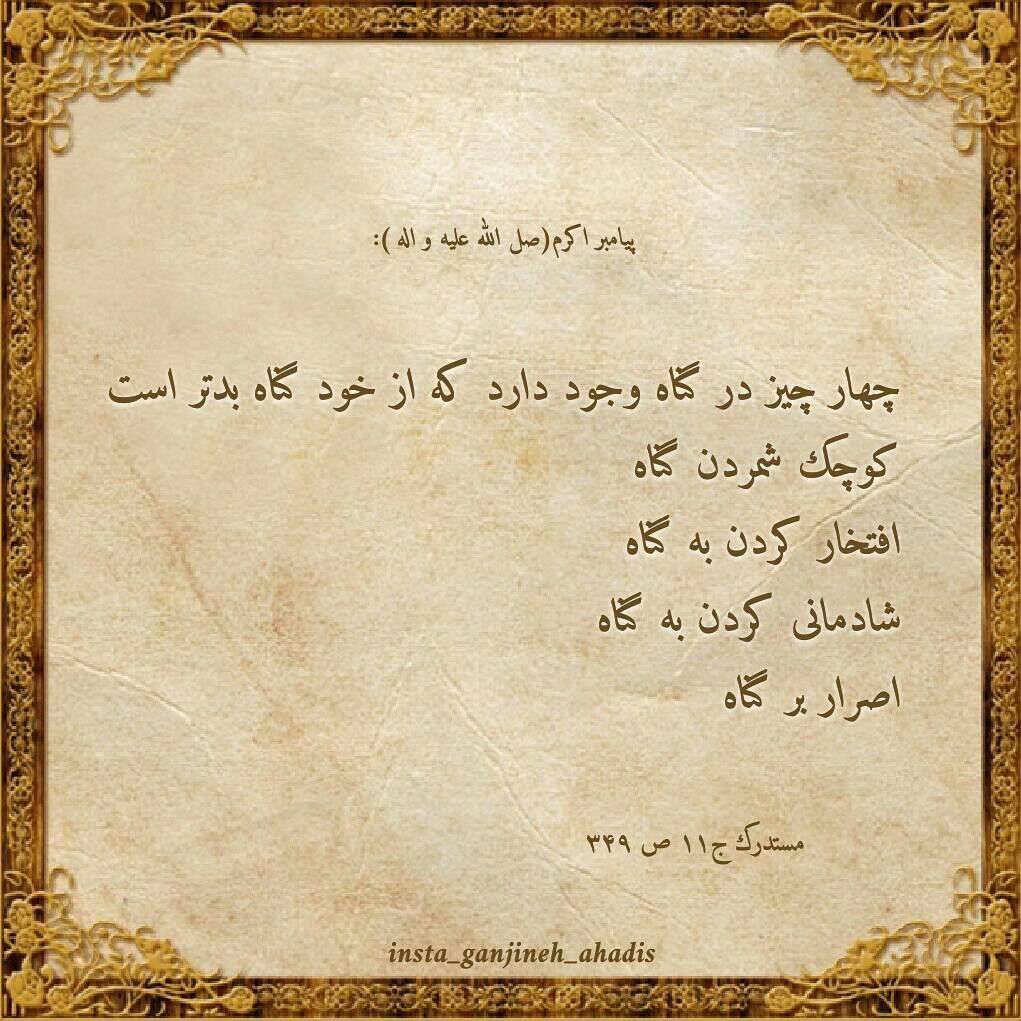 پیامبر اکرم(صل الله علیه و اله ):
چهار چیز در گناه وجود دارد که از خود گناه بدتر است
کوچک شمردن گناه
افتخار کردن به گناه
شادمانی کردن به گناه
اصرار بر گناه
مستدرک ج۱۱ ص ۳۴۹
insta_ganjineh_ahadis